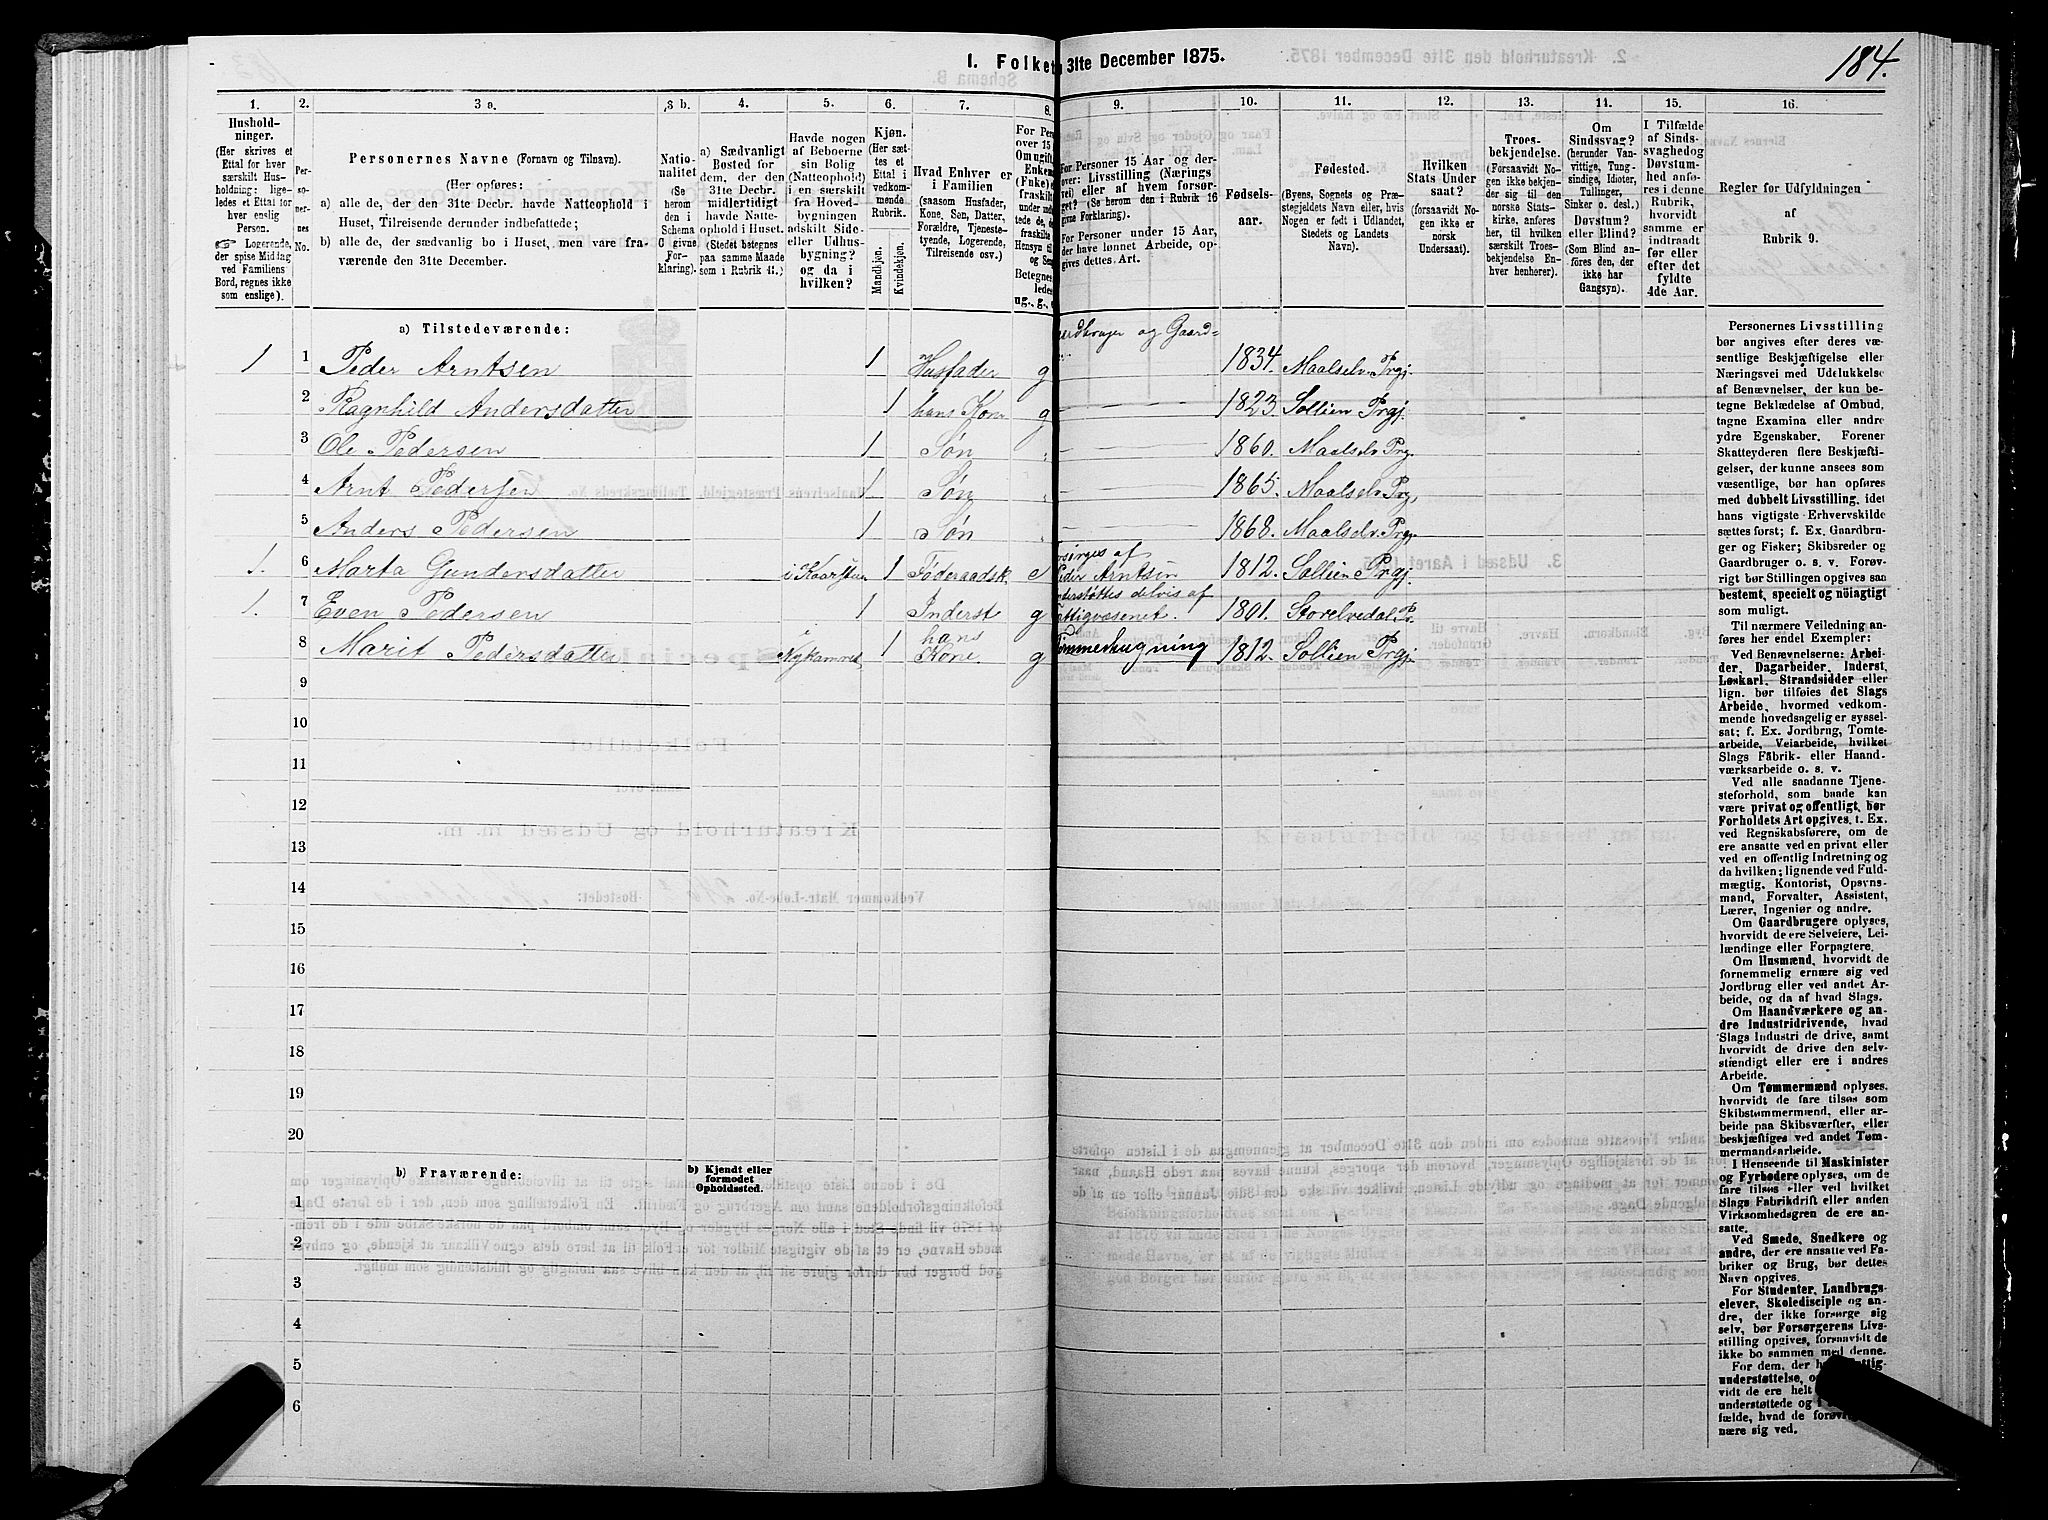 184.
1. Folket
31te December 1875.
1. 2. 3 a. 3 b. 4. 5. 6. 7. 8. 9. 10. 11. 12. 13. 14. 15. 16.
Hushold-
ninger.
(Her skrives et
Ettal for hver
særskilt Hus-
holdning; lige-
ledes et Ettal for
hver enslig
Person.
☞ Logerende,
der spise Middag
ved Familiens
Bord, regnes ikke
som enslige).
Per-
so-
ner-
nes
No.
Personernes Navne (Fornavn og Tilnavn).
(Her opføres:
a) alle de, der den 31te Decbr. havde Natteophold i
Huset, Tilreisende derunder indbefattede;
b) alle de, der sædvanlig bo i Huset, men vare fra-
værende den 31te December.
Natio-
nalitet
(Se
herom
den i
Schema
C givne
For-
klaring).
a) Sædvanligt
Bosted for
dem, der den
31te Decbr.
midlertidigt
havde Natte-
ophold i Huset.
(Stedet betegnes
paa samme Maade
som i Rubrik 11.)
Havde nogen
af Beboerne
sin Bolig
(Natteophold)
i en særskilt
fra Hoved-
bygningen
adskilt Side-
eller Udhus-
bygning?
og da i
hvilken?
Kjøn.
(Her sæt-
tes et
Ettal i
vedkom-
mende
Rubrik.
Mandkjøn.
Kvindekjøn.
Hvad Enhver er
i Familien
(saasom Husfader,
Kone, Søn, Datter,
Forældre, Tjeneste-
tyende, Logerende,
Tilreisende osv.).
For Personer 15 Aar og der-
over: Livsstilling (Nærings
vei) eller af hvem forsør-
get? (Se herom den i Rubrik 16
givne Forklaring).
For Personer under 15 Aar,
der have lønnet Arbeide, op-
gives dettes Art.
Fødsels-
aar.
Fødested.
(Byens, Sognets og Præ-
stegjeldets Navn eller, hvis
Nogen er født i Udlandet,
Stedets og Landets
Navn).
Hvilken
Stats Under
saat?
(forsaavidt No-
gen ikke er
norsk
Undersaat).
Troes-
bekjendelse.
(Forsaavidt No-
gen ikke bekjen-
der sig til den
norske Stats-
kirke, anføres
her, til hvilken
særskilt Troes-
bekjendelse En-
hver henhører).
Om
Sindssvag?
(herunder Van-
vittige, Tung-
sindige, Idioter,
Tullinger,
Sinker o. desl.)
Døvstum?
eller Blind?
(Som Blind an-
føres den, der
ikke har
Gangsyn).
I Tilfælde
af Sinds-
svaghed og
Døvstum-
hed anfø-
res i denne
Rubrik,
hvorvidt
samme er
indtraadt
før eller
efter det
fyldte
4de Aar.
Regler for Udfyldningen
af
Rubrik 9.
a) Tilstedeværende:
og Gaard-
1 1 Peder Arntsen 1 Husfader g 1834. Maalselv Prgj.
2 Ragnhild Andersdatter 1 hans Kone g 1823. Sollien Prgj.
3 Ole Pedersen 1 Søn 1860. Maalselv Prg.
4 Arnt Pedersen 1 Søn 1865. Maalselv Prg.
5 Anders Pedersen 1 Søn 1868. Maalselv Prgj.
forsørges af
1. 6 Marta Gundersdatter 1 Føderaadsk. e Peder Arntsen 1812. Sollien Prgj.
understøttes delvis af
1. 7 Even Pedersen 1 Inderst g Fattigvæsenet. 1801. Storelvedal. P.
8 Marit Pedersdatter 1 hans Kone. g Tømmerhugning 1812. Sollien Prgj.
9
10
11
12
13
14
15
16
17
18
19
20
b) Fraværende:
b) Kjendt eller
formodet
Opholdssted.
1
2
3
4
5
6
Personernes Livsstilling
bør angives efter deres væ-
sentlige Beskjæftigelse eller
Næringsvei med Udelukkelse
af Benævnelser, der kun be-
tegne Beklædelse af Ombud,
tagne Examina eller andre
ydre Egenskaber. Forener
Skatteyderen flere Beskjæfti-
gelser, der kunne ansees som
væsentlige, bør han opføres
med dobbelt Livsstilling, idet
hans vigtigste Erhvervskilde
sættes først; f. Ex. Gaardbru-
ger og Fisker; Skibsreder og
Gaardbruger o. s. v. Forøv-
rigt bør Stillingen opgives saa
bestemt, specielt og nöiagtigt
som muligt.
Til nærmere Veiledning an-
føres her endel Exempler:
Ved Benævnelserne: Arbei-
der, Dagarbeider, Inderst,
Løskarl, Strandsidder eller
lign. bør tilføies det Slags
Arbeide, hvormed vedkom-
mende hovedsagelig er syssel-
sat; f. Ex. Jordbrug, Tomte-
arbeide, Veiarbeide, hvilket
Slags Fabrik- eller Haand-
værksarbeide o. s. v.
Ved alle saadanne Tjene-
steforhold, som baade kan
være privat og offentligt, bør
Forholdets Art opgives, t. Ex.
ved Regnskabsførere, om de
ere ansatte ved en privat eller
ved en offentlig Indretning og
da hvilken; lignende ved Fuld-
mægtig, Kontorist, Opsyns-
mand, Forvalter, Assistent,
Lærer, Ingeniør og andre.
Om Gaardbrugere oplyses,
hvorvidt de ere Selveiere, Lei-
lændinge eller Forpagtere.
Om Husmænd, hvorvidt de
fornemmelig ernære sig ved
Jordbrug eller ved andet Ar-
beide, og da af hvad Slags.
Om Haandværkere og an-
dre Industridrivende, hvad
Slags Industri de drive, samt
hvorvidt de drive den selv-
stændigt eller ere i andres
Arbeide.
Om Tømmermænd oplyses,
hvorvidt de fare tilsøs som
Skibstømmermænd, eller ar-
beide paa Skibsværfter, eller
beskjæftiges ved andet Tøm-
mermandsarbeide.
I Henseende til Maskinister
og Fyrbødere oplyses, om de
fare tilsøs eller ved hvilket
Slags Fabrikdrift eller anden
Virksomhedsgren de ere an-
satte.
Ved Smede, Snedkere og
andre, der ere ansatte ved Fa-
briker og Brug, bør dettes
Navn opgives.
For Studenter, Landbrugs-
elever, Skoledisciple og an-
dre, der ikke forsørge sig
selv, bør Forsørgerens Livs-
stilling opgives, forsaavidt de
ikke bo sammen med denne.
For dem, der
understøttelse,
vidt de ere helt
understøttede og
fælde, hvad de
nære sig ved.